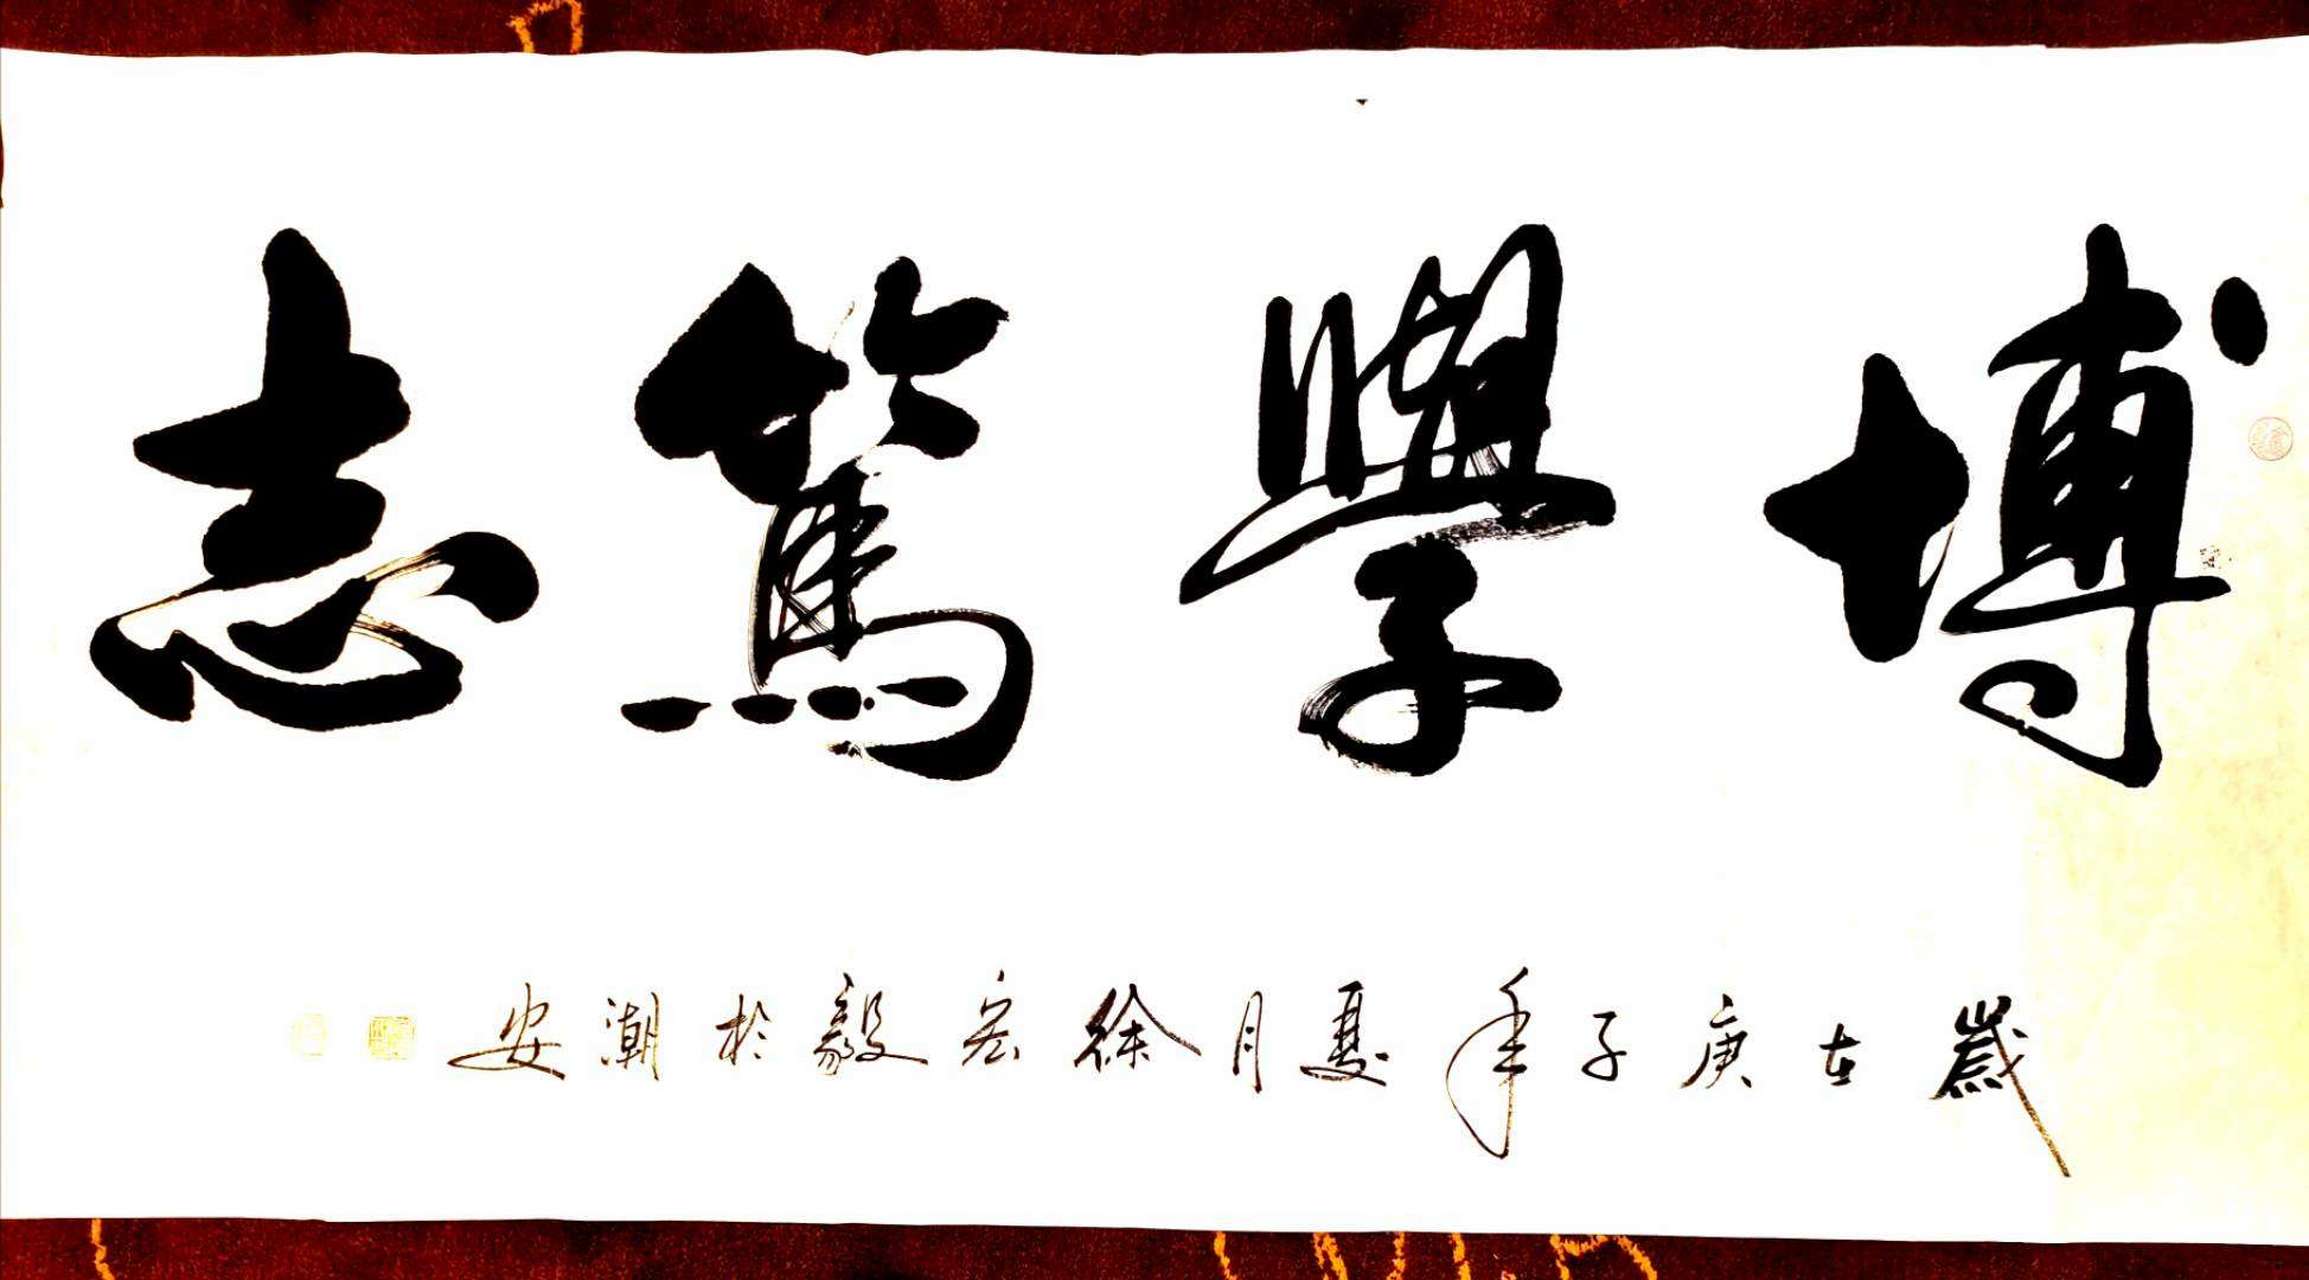 博學篤志
歲在庚子年夏月徐宏毅於潮安